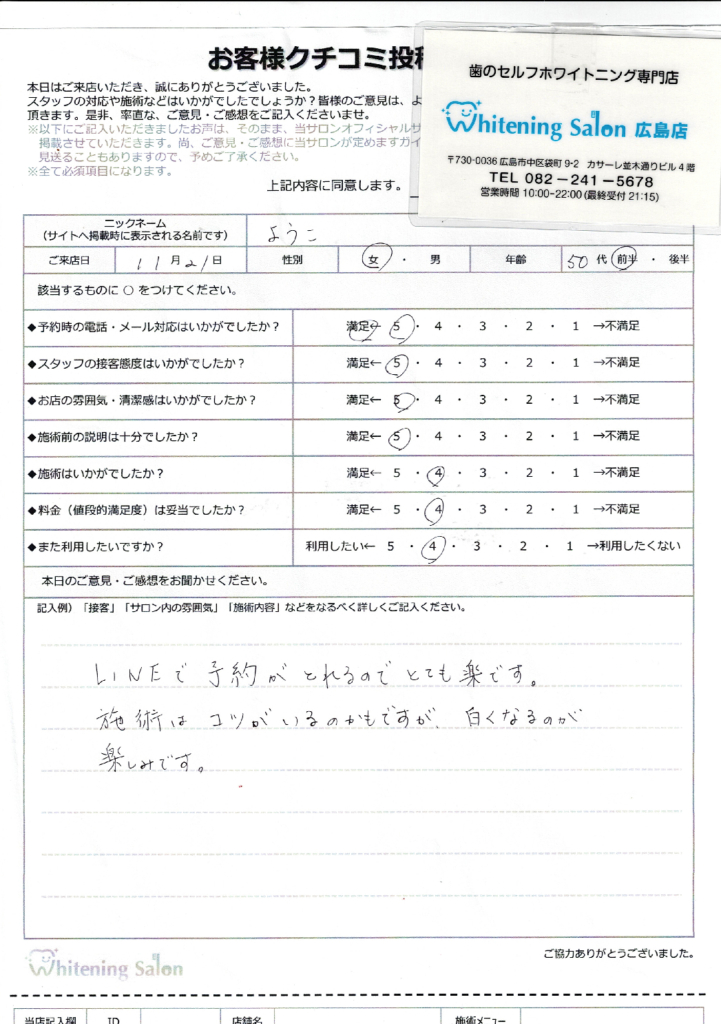 お客様クチコミ投稿
本日はご来店いただき、誠にありがとうございました。
スタッフの対応や施術などはいかがでしたでしょうか？皆様のご意見は、よ
頂きます。是非、率直な、ご意見・ご感想をご記入くださいませ。
※以下にご記入いただきましたお声は、そのまま、当サロンオフィシャルサ
掲載させていただきます。尚、ご意見・ご感想に当サロンが定めますガイ
見送ることもありますので、予めご了承ください。
※全て必須項目になります。
上記内容に同意します。
歯のセルフホワイトニング専門店
Whitening Salon 広島店
〒730-0036 広島市中区袋町 9-2 カサーレ並木通りビル 4 階
TEL 082－241－5678
営業時間 10:00-22:00 (最終受付 21:15)
ニックネーム
（サイトへ掲載時に表示される名前です） ようこ
ご来店日 11月21日 性別 女・男 年齢 50代 前半・後半
該当するものに ○ をつけてください。
◆予約時の電話・メール対応はいかがでしたか？ 満足← 5・4・3・2・1 →不満足
◆スタッフの接客態度はいかがでしたか？ 満足← 5・4・3・2・1 →不満足
◆お店の雰囲気・清潔感はいかがでしたか？ 満足← 5・4・3・2・1 →不満足
◆施術前の説明は十分でしたか？ 満足← 5・4・3・2・1 →不満足
◆施術はいかがでしたか？ 満足← 5・4・3・2・1 →不満足
◆料金（値段的満足度）は妥当でしたか？ 満足← 5・4・3・2・1 →不満足
◆また利用したいですか？ 利用したい← 5・4・3・2・1 →利用したくない
本日のご意見・ご感想をお聞かせください。
記入例）「接客」「サロン内の雰囲気」「施術内容」などをなるべく詳しくご記入ください。
LINEで予約がとれるのでとても楽です。
施術はコツがいるのかもですが、白くなるのが
楽しみです。
ご協力ありがとうございました。
Whitening Salon
当店記入欄 ID 店舗名 施術メニュー